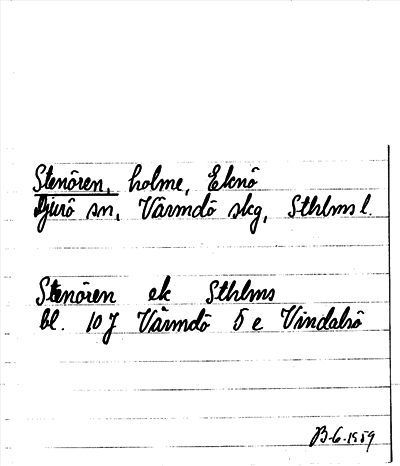 Stenören, holme, Eknö
Djurö sn, Värmdö skg, Sthlms l.
Stenören ek Sthlms
bl. 10J Värmdö 5 e Vindalsö
B-6-1959